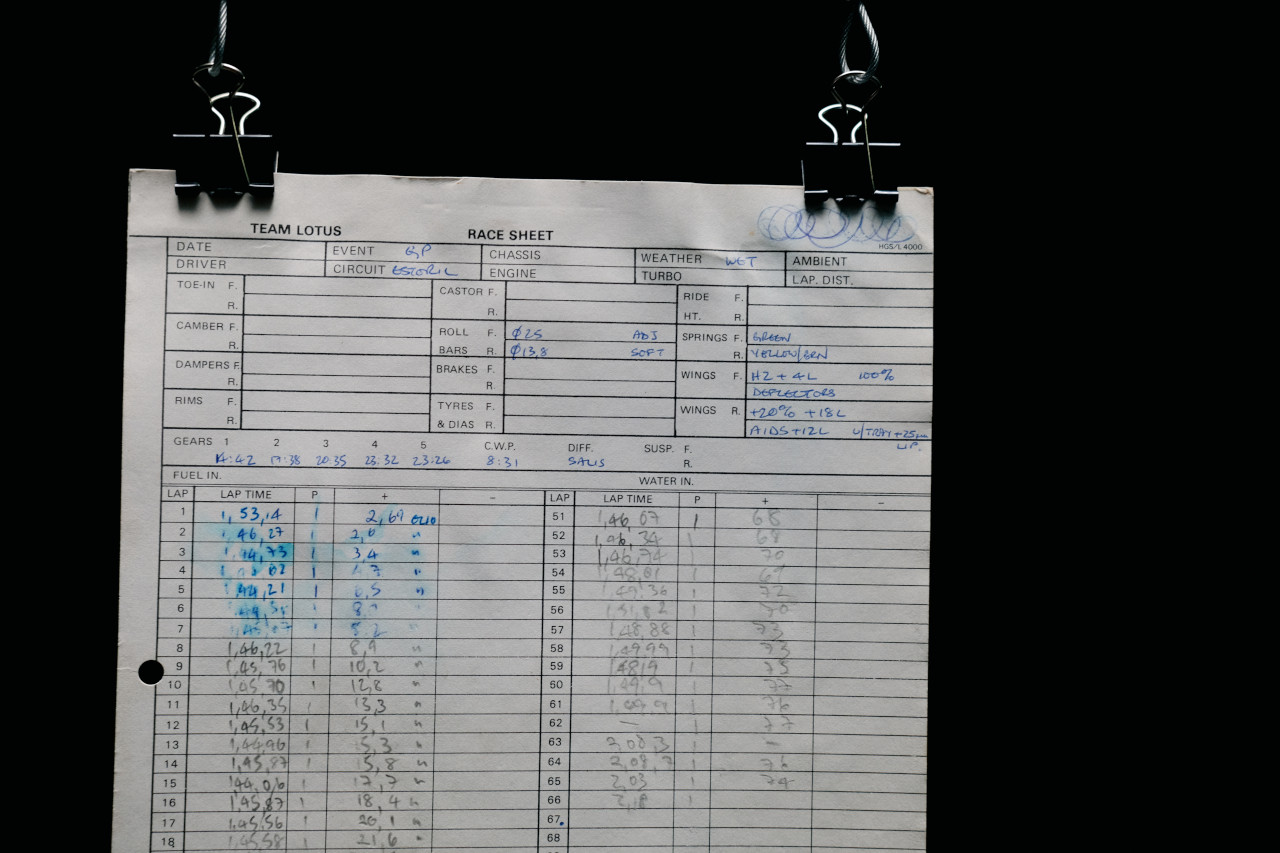 TEAM LOTUS RACE SHEET
HGS/L 4000
DATE EVENT GP CHASSIS WEATHER WET AMBIENT
DRIVER CIRCUIT ESTORIL ENGINE TURBO LAP. DIST.
TOE-IN F. CASTOR F. RIDE F.
R. R. HT. R.
CAMBER F. ROLL F. Ø25 ADJ SPRINGS F. GREEN
R. BARS R. Ø13,8 SOFT R. YELLOW/GRN
DAMPERS F. BRAKES F. WINGS F. H2 + 4L 100%
R. R. DEFLECTORS
RIMS F. TYRES F. WINGS R. +20% +18L
R. & DIAS R. AIDS+12L U/TRAY +25mm
LIP.
GEARS 1 2 3 4 5 C.W.P. DIFF. SUSP. F.
14:42 17:38 20:35 23:32 23:26 8:31 SALIS R.
FUEL IN. WATER IN.
LAP LAP TIME P + − LAP LAP TIME P + −
1 1,53,14 1 2,69 ELIO 51 1,46,07 1 68
2 1,46,27 1 " 52 1,46,34 68
3 1,44,73 1 3,4 " 53 1,46,74 70
4 1 " 54 1,48,01 1 69
5 1,44,21 1 6,5 " 55 1,49,36 1 72
6 56 1,51,82 1 70
7 57 1,48,88 1 73
8 1,46,22 8,9 " 58 1,49,99 1 73
9 1,45,76 1 10,2 " 59 1,48,19 1 75
10 1,45,70 1 12,8 " 60 1,49,9 1 77
11 1,46,35 1 13,3 " 61 1,49,9 1 76
12 1,45,53 1 15,1 " 62 — 1 77
13 1,44,96 1 15,3 " 63 2,08,3 1 –
14 1,45,87 1 15,8 " 64 1 76
15 1,44,06 1 17,7 " 65 2,03 1 74
16 1,45,87 1 18,4 " 66 2,18 1
17 1,45,56 1 20,1 " 67
18 1,45,58 1 21,6 " 68